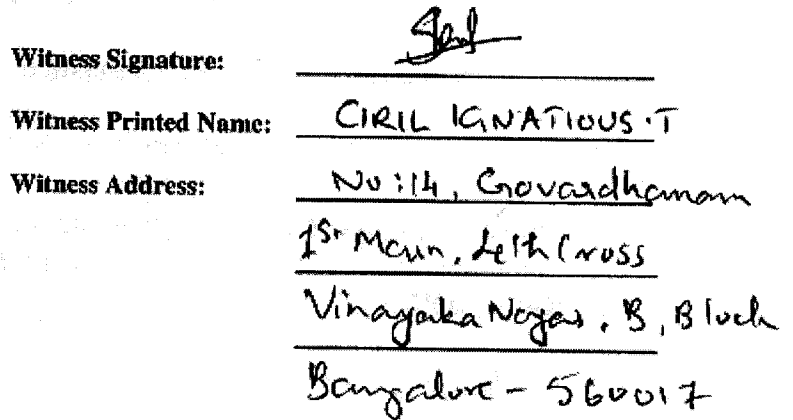 Witness Signature:
Witness Printed Name: CIRIL IGNATIOUS.T
Witness Address: No:14, Govardhanam
1st Main, 4th Cross
Vinayaka Nagar. B, Block
Bangalore - 560017